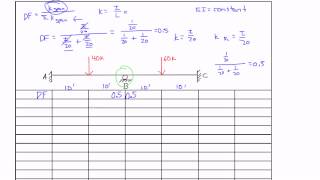 DF = K span / Σ K span
K = I/L
EI = constant
DF = I/20 / I/20 + I/20 = 1/20 / 1/20 + 1/20 = 0.5
K = I/20
K = I/20
1/20 / 1/20 + 1/20 = 0.5
40k 60k
A B C
10' 10' 10' 10'
DF 0.5 0.5